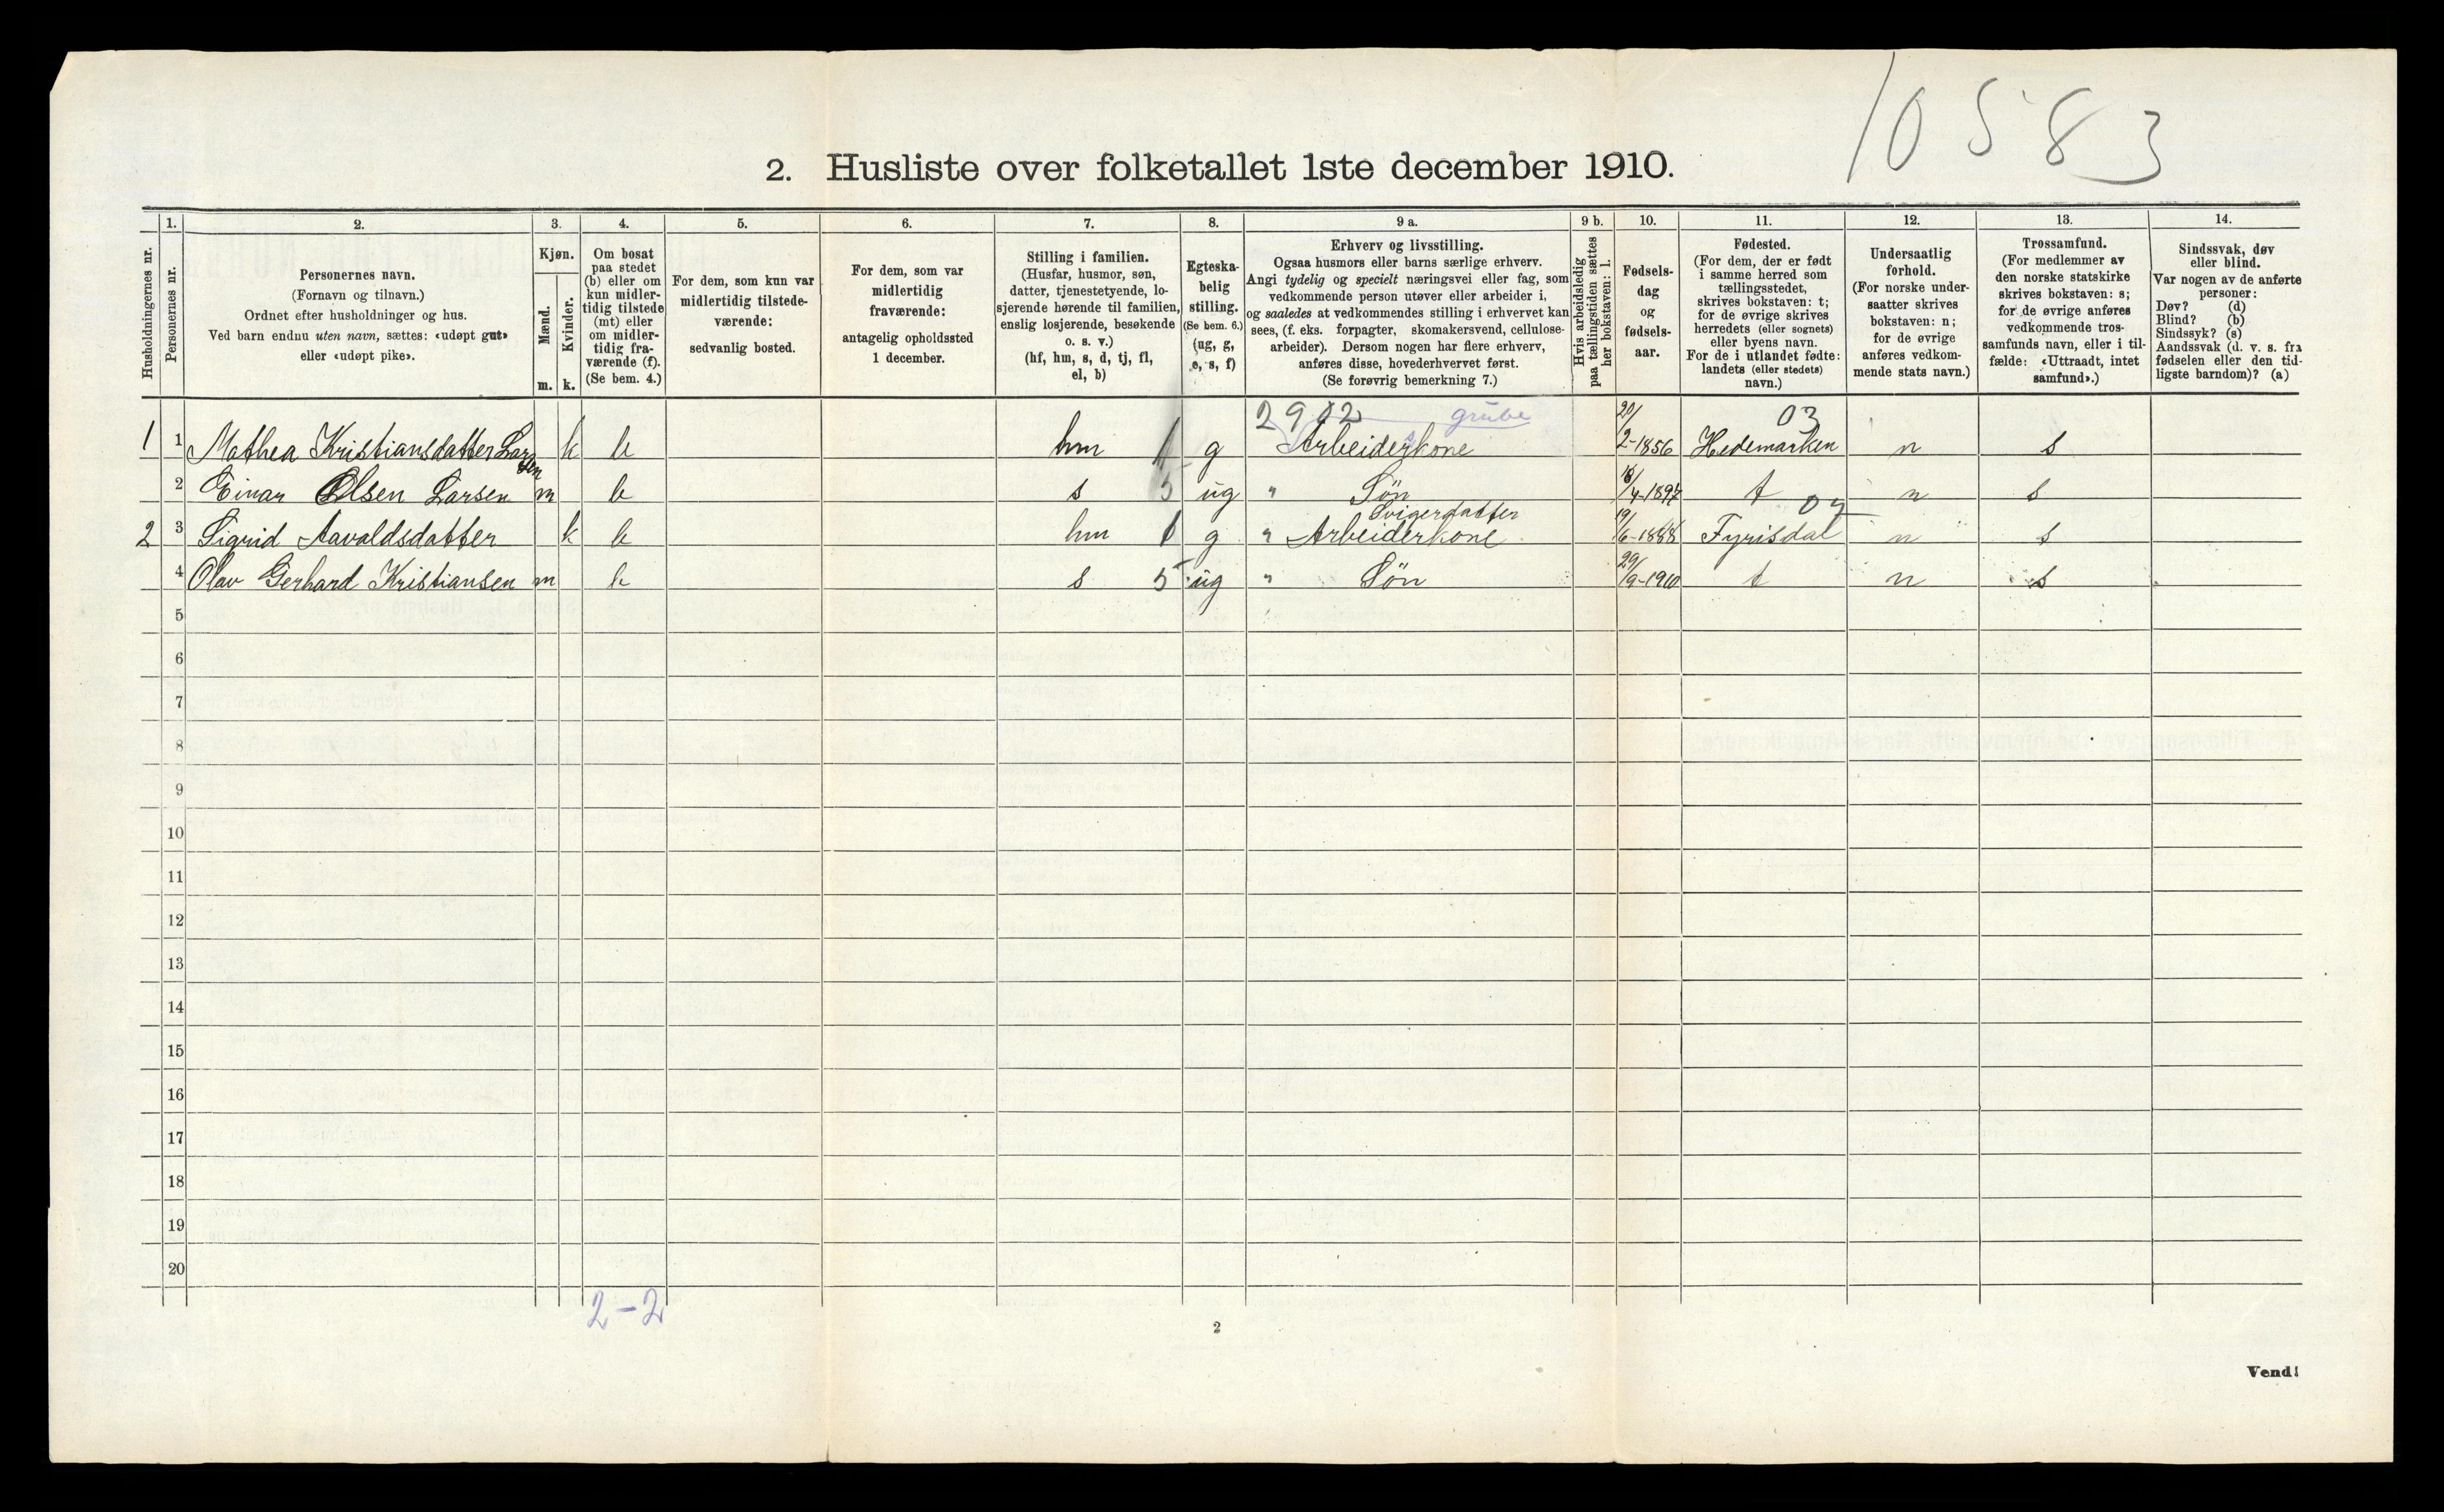 10583
2. Husliste over folketallet 1ste december 1910.
Husholdningernes nr.
1.
Personernes nr.
2.
Personernes navn.
(Fornavn og tilnavn.)
Ordnet efter husholdninger og hus.
Ved barn endnu uten navn, sættes: «udøpt gut»
eller «udøpt pike».
3.
Kjøn.
Mænd.
Kvinder.
m. k.
4.
Om bosat
paa stedet
(b) eller om
kun midler-
tidig tilstede
(mt) eller
om midler-
tidig fra-
værende (f).
(Se bem. 4.)
5.
For dem, som kun var
midlertidig tilstede-
værende:
sedvanlig bosted.
6.
For dem, som var
midlertidig
fraværende:
antagelig opholdssted
1 december.
7.
Stilling i familien.
(Husfar, husmor, søn,
datter, tjenestetyende, lo-
sjerende hørende til familien,
enslig losjerende, besøkende
o. s. v.)
(hf, hm, s, d, tj, fl,
el, b)
8.
Egteska-
belig
stilling.
(Se bem. 6.)
(ug, g,
e, s, f)
9 a.
Erhverv og livsstilling.
Ogsaa husmors eller barns særlige erhverv.
Angi tydelig og specielt næringsvei eller fag, som
vedkommende person utøver eller arbeider i,
og saaledes at vedkommendes stilling i erhvervet kan
sees, (f. eks. forpagter, skomakersvend, cellulose-
arbeider). Dersom nogen har flere erhverv,
anføres disse, hovederhvervet først.
(Se forøvrig bemerkning 7.)
9 b.
Hvis arbeidsledig
paa tællingstiden sættes
her bokstaven: l.
10.
Fødsels-
dag
og
fødsels-
aar.
11.
Fødested.
(For dem, der er født
i samme herred som
tællingsstedet,
skrives bokstaven: t;
for de øvrige skrives
herredets (eller sognets)
eller byens navn.
For de i utlandet fødte:
landets (eller stedets)
navn.)
12.
Undersaatlig
forhold.
(For norske under-
saatter skrives
bokstaven: n;
for de øvrige
anføres vedkom-
mende stats navn.)
13.
Trossamfund.
(For medlemmer av
den norske statskirke
skrives bokstaven: s;
for de øvrige anføres
vedkommende tros-
samfunds navn, eller i til-
fælde: «Uttraadt, intet
samfund».)
14.
Sindssvak, døv
eller blind.
Var nogen av de anførte
personer:
Døv? (d)
Blind? (b)
Sindssyk? (s)
Aandssvak (d. v. s. fra
fødselen eller den tid-
ligste barndom)? (a)
2902 grube 03
1 1 Mathea Kristiansdatter Larsen k b hm 1 g Arbeiderkone 20/2-1856 Hedemarken n s
2 Einar Olsen Larsen m b s 5 ug " Søn /4-1897 t n s
Svigerdatter
2 3 Sigrid Aavaldsdatter k b hm 1 g " Arbeiderkone 19/6-1888 Fyrisdal n s
4 Olav Gerhard Kristiansen m b s 5 ug " Søn 29/9-1910 t n s
5
6
7
8
9
10
11
12
13
14
15
16
17
18
19
20
2-2
2
Vend!